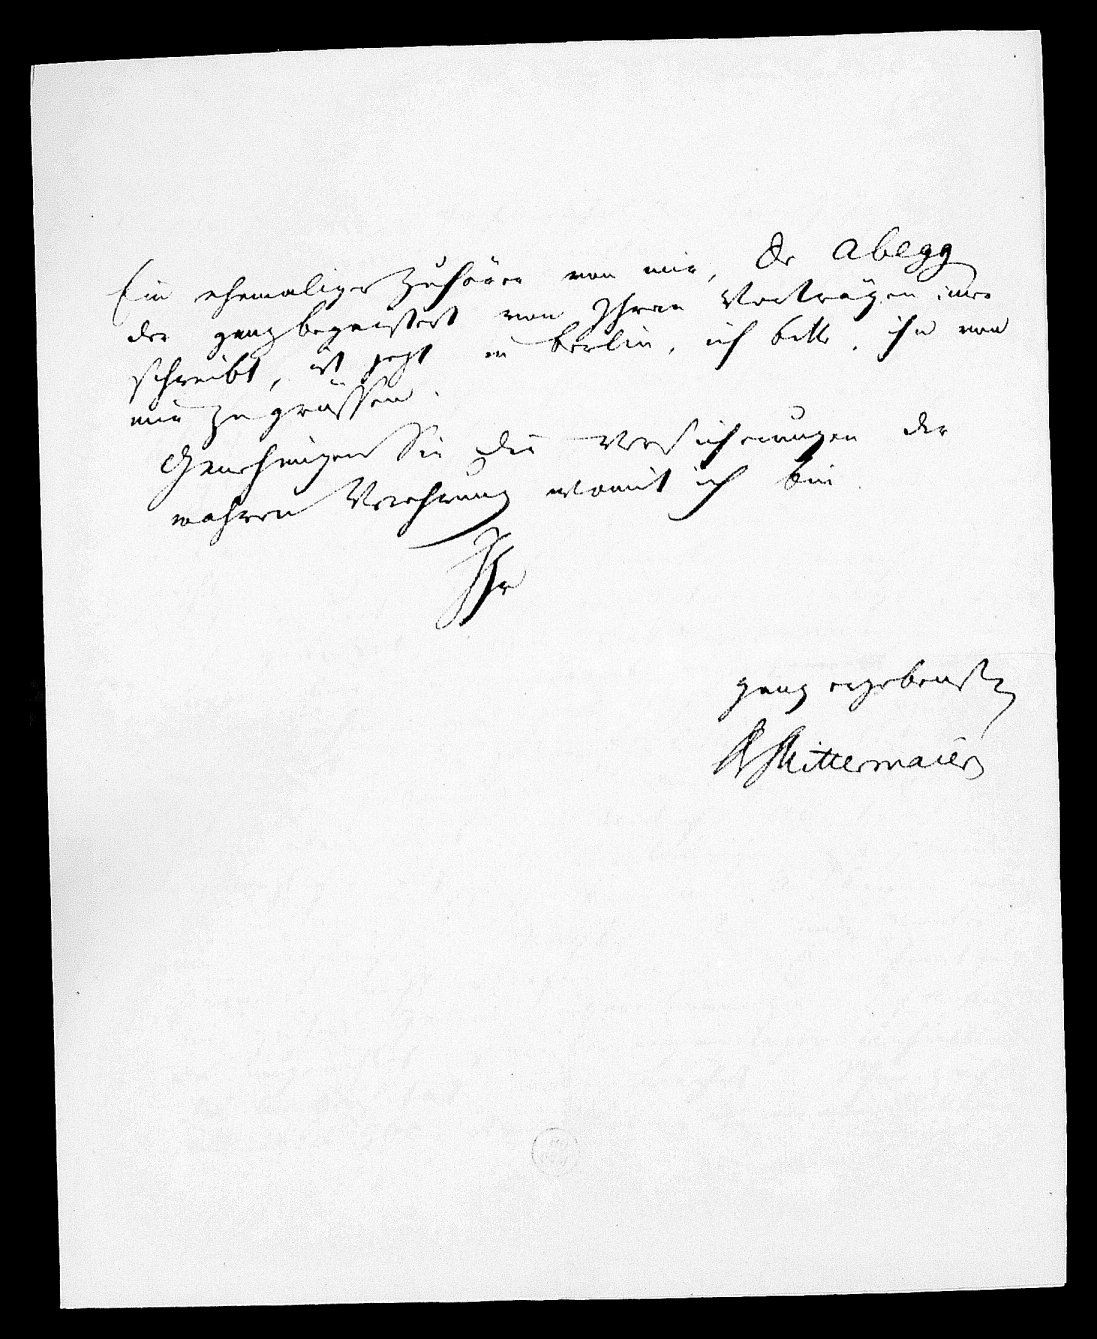 Ein ehemaliger Zuhörer von mir, Dr Abegg
der ganz begeistert von Ihren Vorträgen mir
schreibt, ist jezt in Berlin, ich bitte, ihn von
mir zu grüssen.
Genehmigen Sie die Versicherungen der
wahren Verehrung womit ich bin
Ihr
ganz ergebenster
Mittermaier